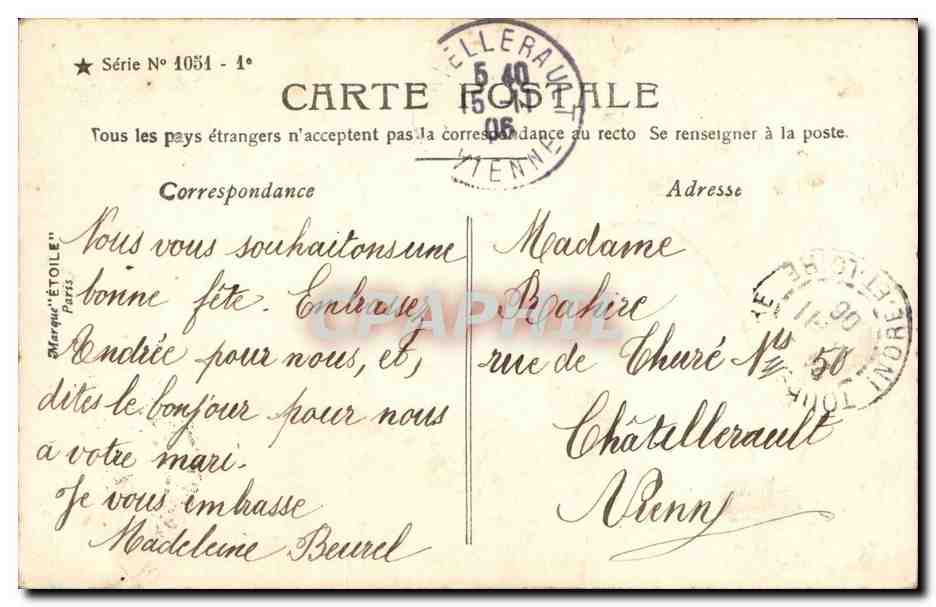 ★ Série Nº 1051 - 1º
CARTE POSTALE
Tous les pays étrangers n'acceptent pas la correspondance au recto Se renseigner à la poste.
Correspondance
Nous vous souhaitons une
bonne fête. Embrassez
Andrée pour nous, et,
dites le bonjour pour nous
a votre mari.
Je vous embrasse
Madeleine Beurel
Adresse
Madame
Rahire
rue de Thuré Nº 50
Châtellerault
Vienne
Marque "ÉTOILE"
Paris
ELLERAULT
5 40
15 -11
06
VIENNE
INDRE-ET-LOIRE
CPAPHIL